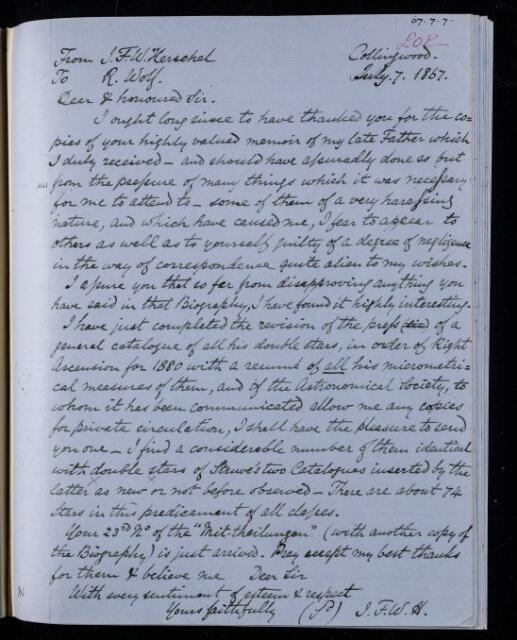 67.7.7.
208
From J.F.W. Herschel Collingwood.
To R. Wolf. July. 7. 1867.
Dear & honoured Sir.
I ought long since to have thanked you for the co=
pies of your highly valued memoir of my late Father which
I duly received – and should have assuredly done so but
from the pressure of many things which it was necessary
for me to attend to – some of them of a very harassing
nature, and which have caused me, I fear to appear to
others as well as to yourself guilty of a degree of negligence
in the way of correspondence quite alien to my wishes.
I assure you that so far from disapproving anything you
have said in that Biography, I have found it highly interesting.
I have just completed the revision of the press (sic) of a
general catalogue of all his double stars, in order of Right
Ascension for 1880 with a resumé of all his micrometri=
cal measures of them, and if the Astronomical Society, to
whom it has been communicated allow me any copies
for private circulation, I shall have the pleasure to send
you one – I find a considerable number of them identical
with double stars of Struve's two Catalogues inserted by the
latter as new or not before observed – There are about 74
stars in this predicament of all classes.
Your 23rd No of the "Mittheilungen" (with another copy of
the Biography) is just arrived. Pray accept my best thanks
for them & believe me Dear Sir
With every sentiment of esteem & respect
Yours faithfully (Sd) J.F.W.H.